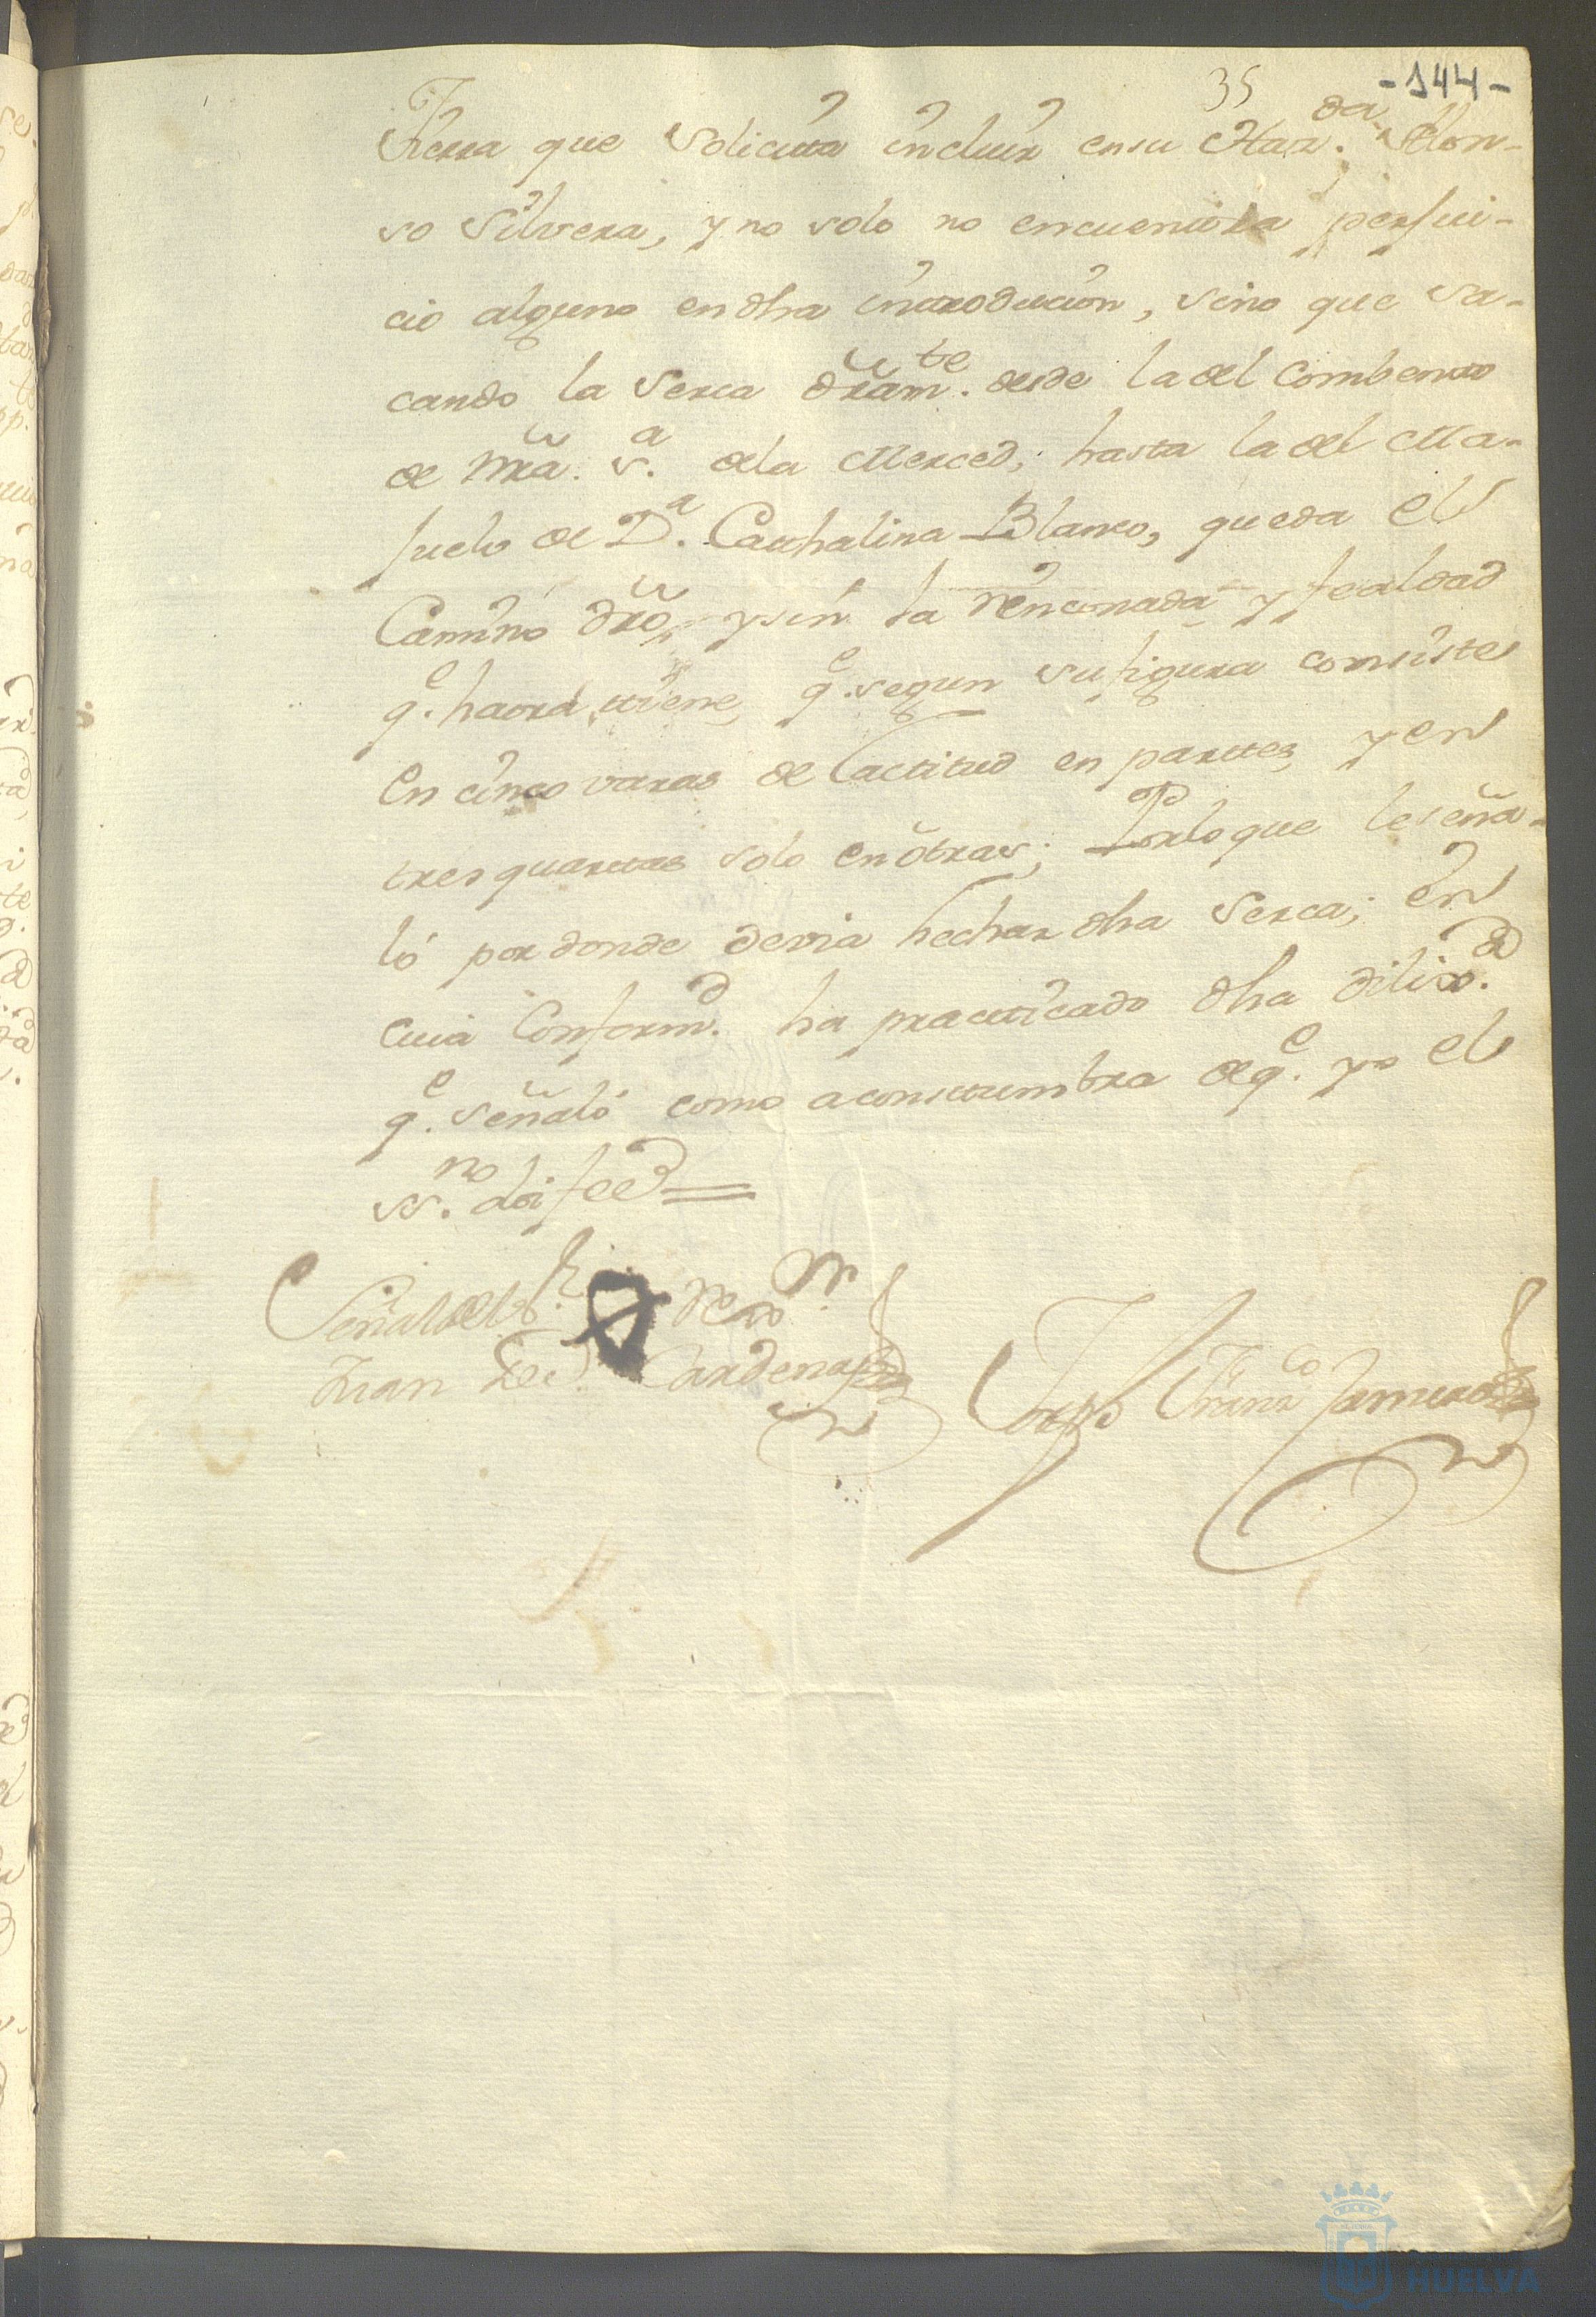 35 -144-
Tierra que Solicita incluir en su Haz.da Alon-
so Silvera, y no solo no encuentra perjui-
cio alguno en dha introducion, sino que sa-
cando la Serca dram.te desde la del Combento
de Nra. S.a dela Merced, hasta la del Ma-
juelo de D.a Cathalina Blanco, queda el
Camino dro, y sin la renconada y fealdad
q.e haora tiene, q.e segun su figura consiste
en cinco varas de lactitud en partes, y en
tres quartas solo en otras; Por lo que le seña-
ló por donde devia hechar dha Serca; en
cuia Conform.d ha practicado dha dilix.a
q.e señaló como acontumbra de q.e yo el
ss.no doi fee =
Señal del
Juan Cardenas
Josph Franz.co Jamero
HUELVA